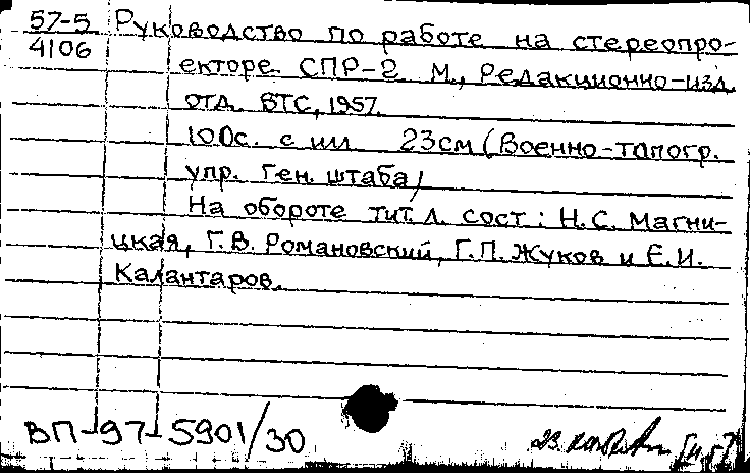 57-5 Руководство по работе на стереопро-
4106 екторе СПР-2. М., Редакционно-изд.
отд. ВТС, 1957.
100с. с ил 23см (Военно-топогр.
упр. Ген. штаба)
На обороте тит. л. сост.: Н.С. Магни-
цкая, Г.В. Романовский, Г.П. Жуков и Е.И.
Калантаров.
ВП-97-5901/30